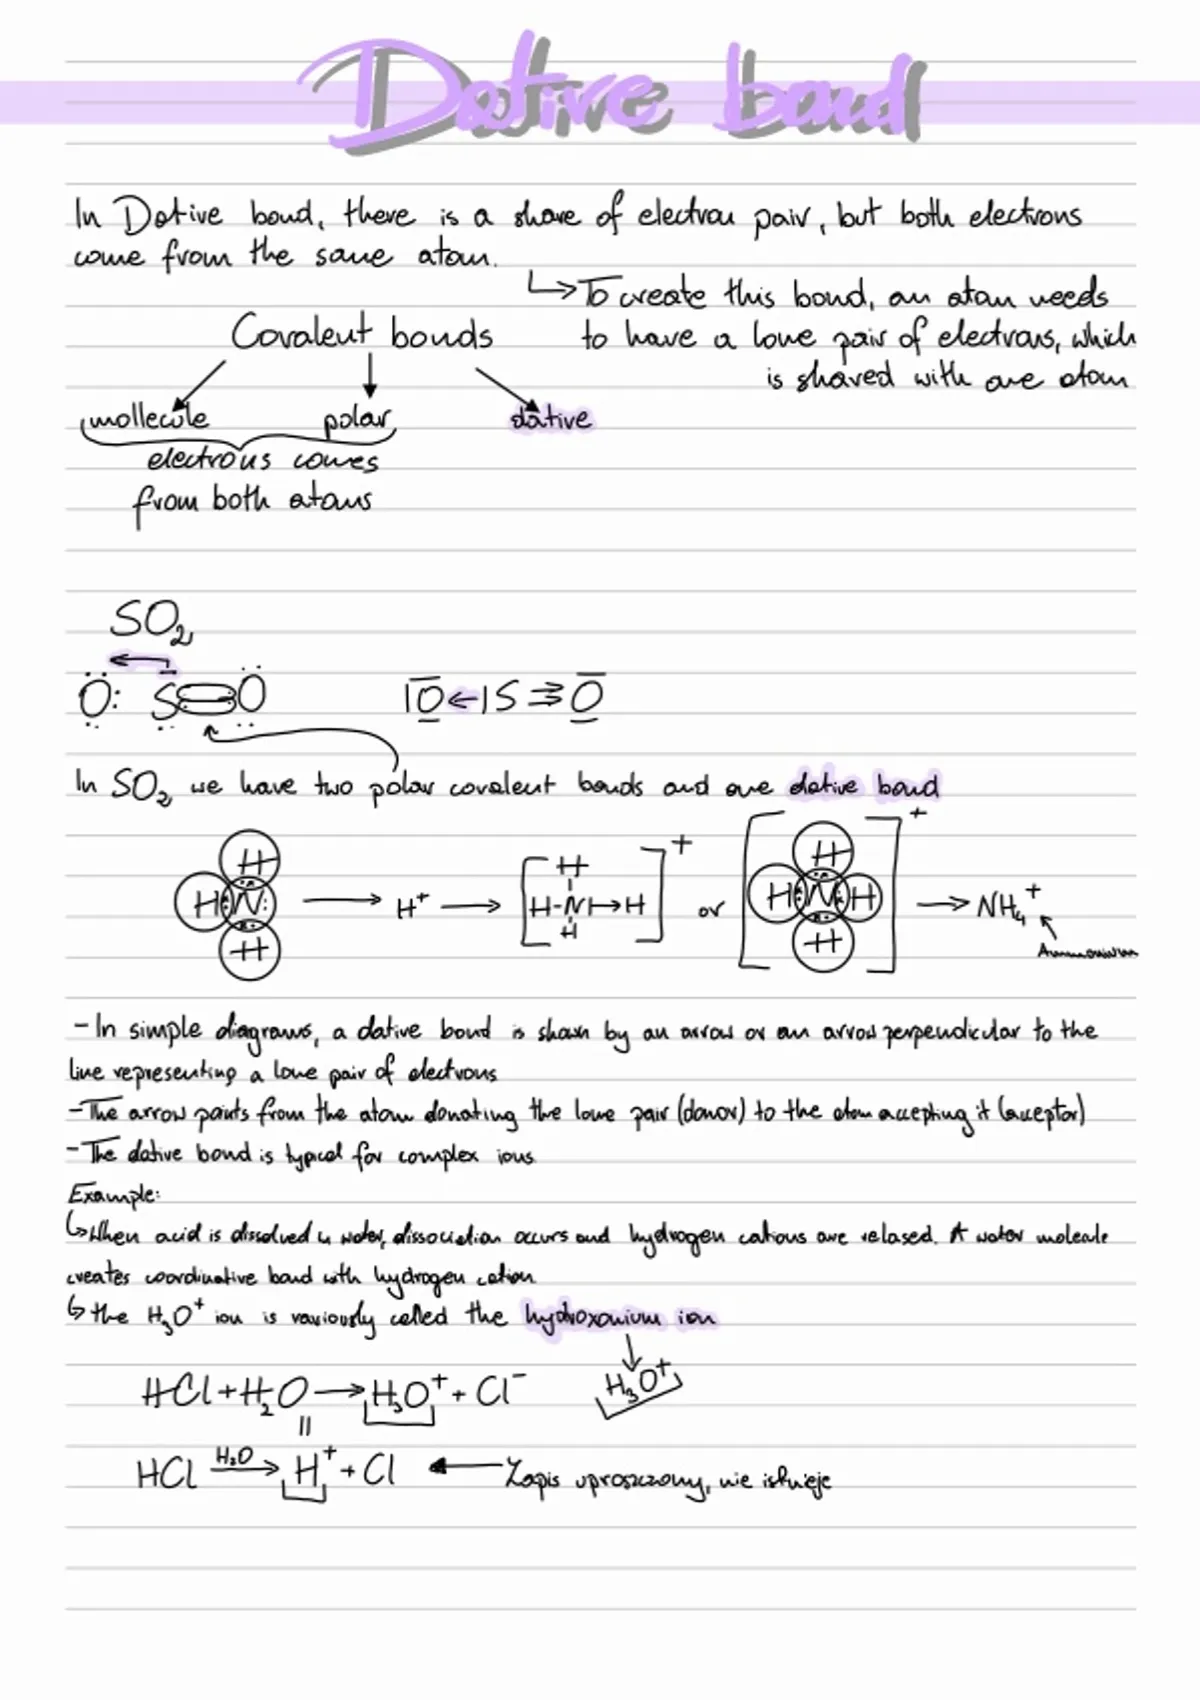 Dative bond
In Dative bond, there is a share of electron pair, but both electrons
come from the same atom.
↳To create this bond, an atom needs
to have a lone pair of electrons, which
is shared with one atom
Covalent bonds
mollecule polar dative
electrons comes
from both atoms
SO₂
O: S=O |O←|S⇉O
In SO₂ we have two polar covalent bonds and one dative bond
H
H N: → H⁺ → [H-N→H]⁺ or [H N H]⁺ → NH₄⁺
H
Ammonium
-In simple diagrams, a dative bond is shown by an arrow or an arrow perpendicular to the
line representing a lone pair of electrons
-The arrow points from the atom donating the lone pair (donor) to the atom accepting it (acceptor)
-The dative bond is typical for complex ions
Example:
↳When acid is dissolved in water, dissociation occurs and hydrogen cations are relased. A water molecule
creates coordinative bond with hydrogen cation
↳the H₃O⁺ ion is variously called the hydroxonium ion
HCl+H₂O→H₃O⁺+Cl⁻ H₃O⁺
HCl H₂O→ H⁺+Cl ← Zapis uproszczony, nie istnieje